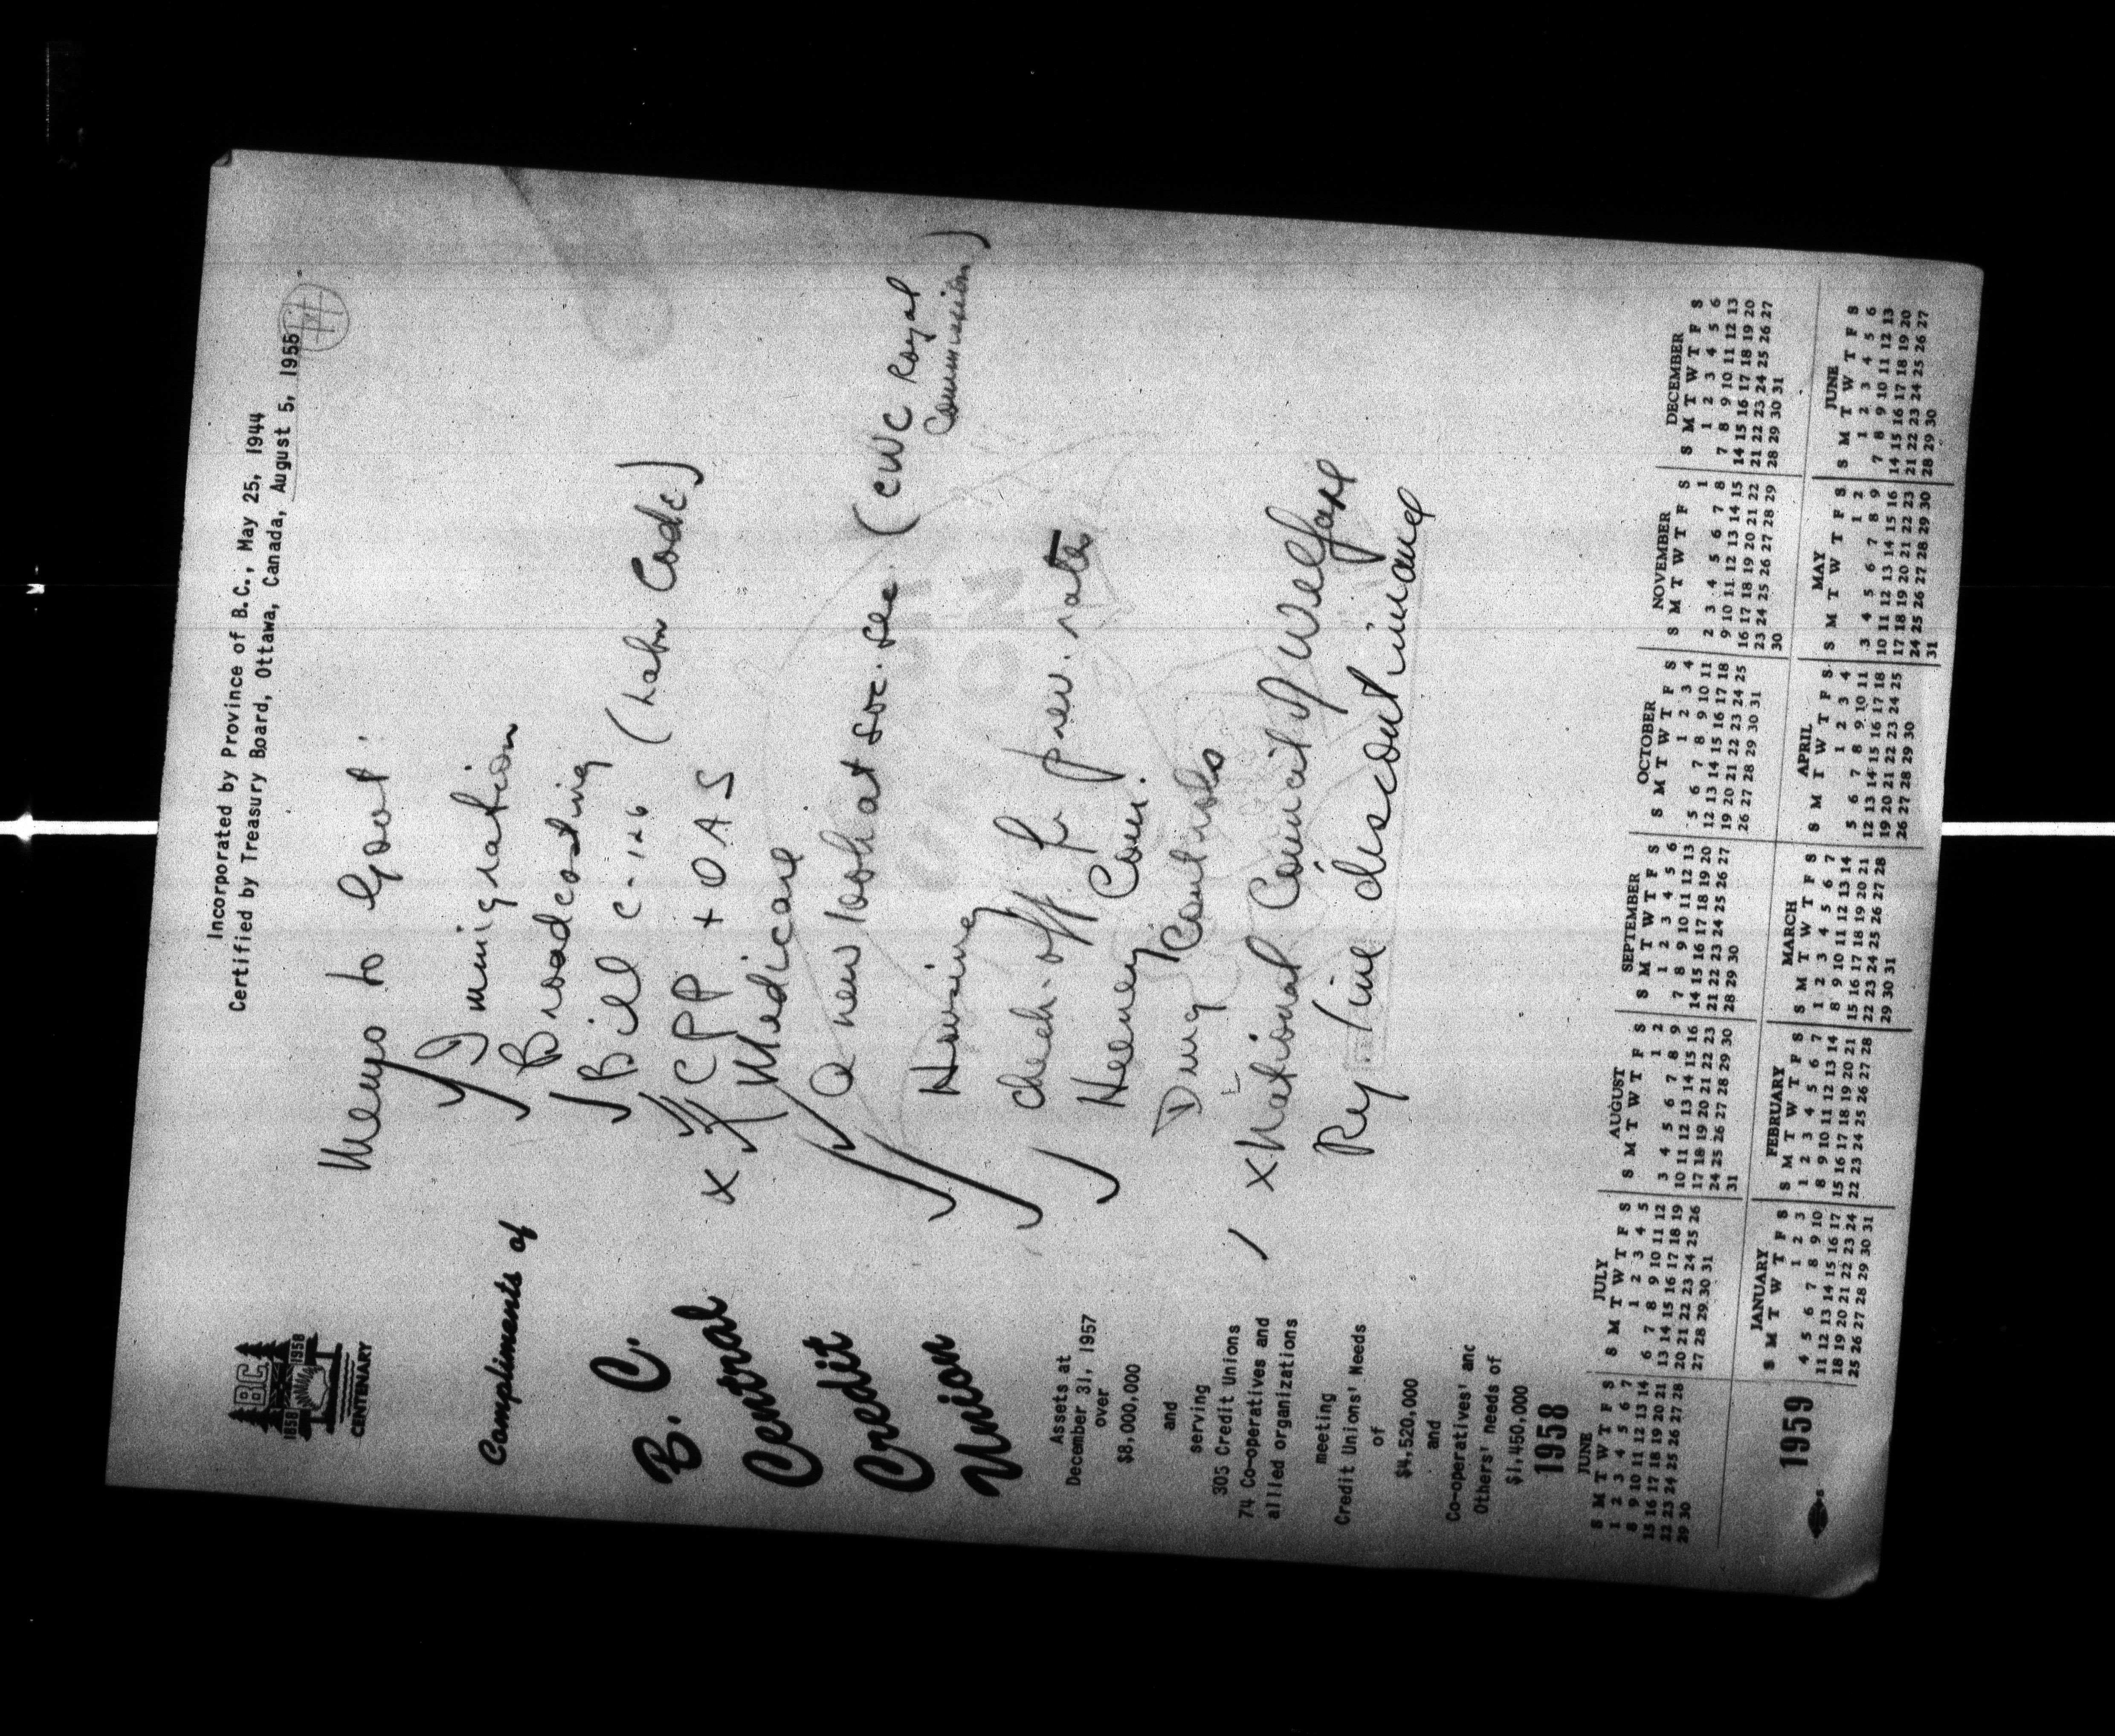 Incorporated by Province of B.C., May 25, 1944
Certified by Treasury Board, Ottawa, Canada, August 5, 1955
BC
1858 1958
CENTENARY
Compliments of
B. C.
Central
Credit
Union
Assets at
December 31, 1957
over
$8,000,000
and
serving
305 Credit Unions
74 Co-operatives and
allied organizations
meeting
Credit Unions' Needs
of
$4,520,000
and
Co-operatives' and
Others' needs of
$1,450,000
Memo to Govt.
Immigration
Broadcasting
Bill C-126 (Labor Code)
CPP + OAS
x Medicare
A new look at soc. sec. (CWC Royal Commission)
Housing
check-off for prew. rates
Heeney Com.
Drug Controls
x National Council of Welfare
Ry line discontinuance
1958
JUNE
S M T W T F S
1 2 3 4 5 6 7
8 9 10 11 12 13 14
15 16 17 18 19 20 21
22 23 24 25 26 27 28
29 30
JULY
S M T W T F S
1 2 3 4 5
6 7 8 9 10 11 12
13 14 15 16 17 18 19
20 21 22 23 24 25 26
27 28 29 30 31
AUGUST
S M T W T F S
1 2
3 4 5 6 7 8 9
10 11 12 13 14 15 16
17 18 19 20 21 22 23
24 25 26 27 28 29 30
31
SEPTEMBER
S M T W T F S
1 2 3 4 5 6
7 8 9 10 11 12 13
14 15 16 17 18 19 20
21 22 23 24 25 26 27
28 29 30
OCTOBER
S M T W T F S
1 2 3 4
5 6 7 8 9 10 11
12 13 14 15 16 17 18
19 20 21 22 23 24 25
26 27 28 29 30 31
NOVEMBER
S M T W T F S
1
2 3 4 5 6 7 8
9 10 11 12 13 14 15
16 17 18 19 20 21 22
23 24 25 26 27 28 29
30
DECEMBER
S M T W T F S
1 2 3 4 5 6
7 8 9 10 11 12 13
14 15 16 17 18 19 20
21 22 23 24 25 26 27
28 29 30 31
1959
JANUARY
S M T W T F S
1 2 3
4 5 6 7 8 9 10
11 12 13 14 15 16 17
18 19 20 21 22 23 24
25 26 27 28 29 30 31
FEBRUARY
S M T W T F S
1 2 3 4 5 6 7
8 9 10 11 12 13 14
15 16 17 18 19 20 21
22 23 24 25 26 27 28
MARCH
S M T W T F S
1 2 3 4 5 6 7
8 9 10 11 12 13 14
15 16 17 18 19 20 21
22 23 24 25 26 27 28
29 30 31
APRIL
S M T W T F S
1 2 3 4
5 6 7 8 9 10 11
12 13 14 15 16 17 18
19 20 21 22 23 24 25
26 27 28 29 30
MAY
S M T W T F S
1 2
3 4 5 6 7 8 9
10 11 12 13 14 15 16
17 18 19 20 21 22 23
24 25 26 27 28 29 30
31
JUNE
S M T W T F S
1 2 3 4 5 6
7 8 9 10 11 12 13
14 15 16 17 18 19 20
21 22 23 24 25 26 27
28 29 30